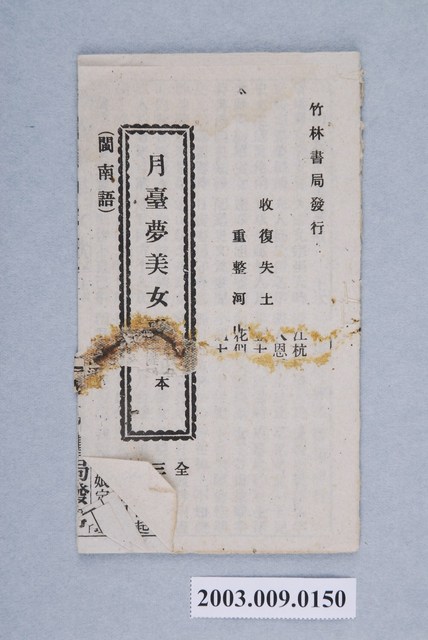 竹林書局發行
收復失土
重整河
月臺夢美女
本
(閩南語)
全三
江杭
恩
局發
2003.009.0150